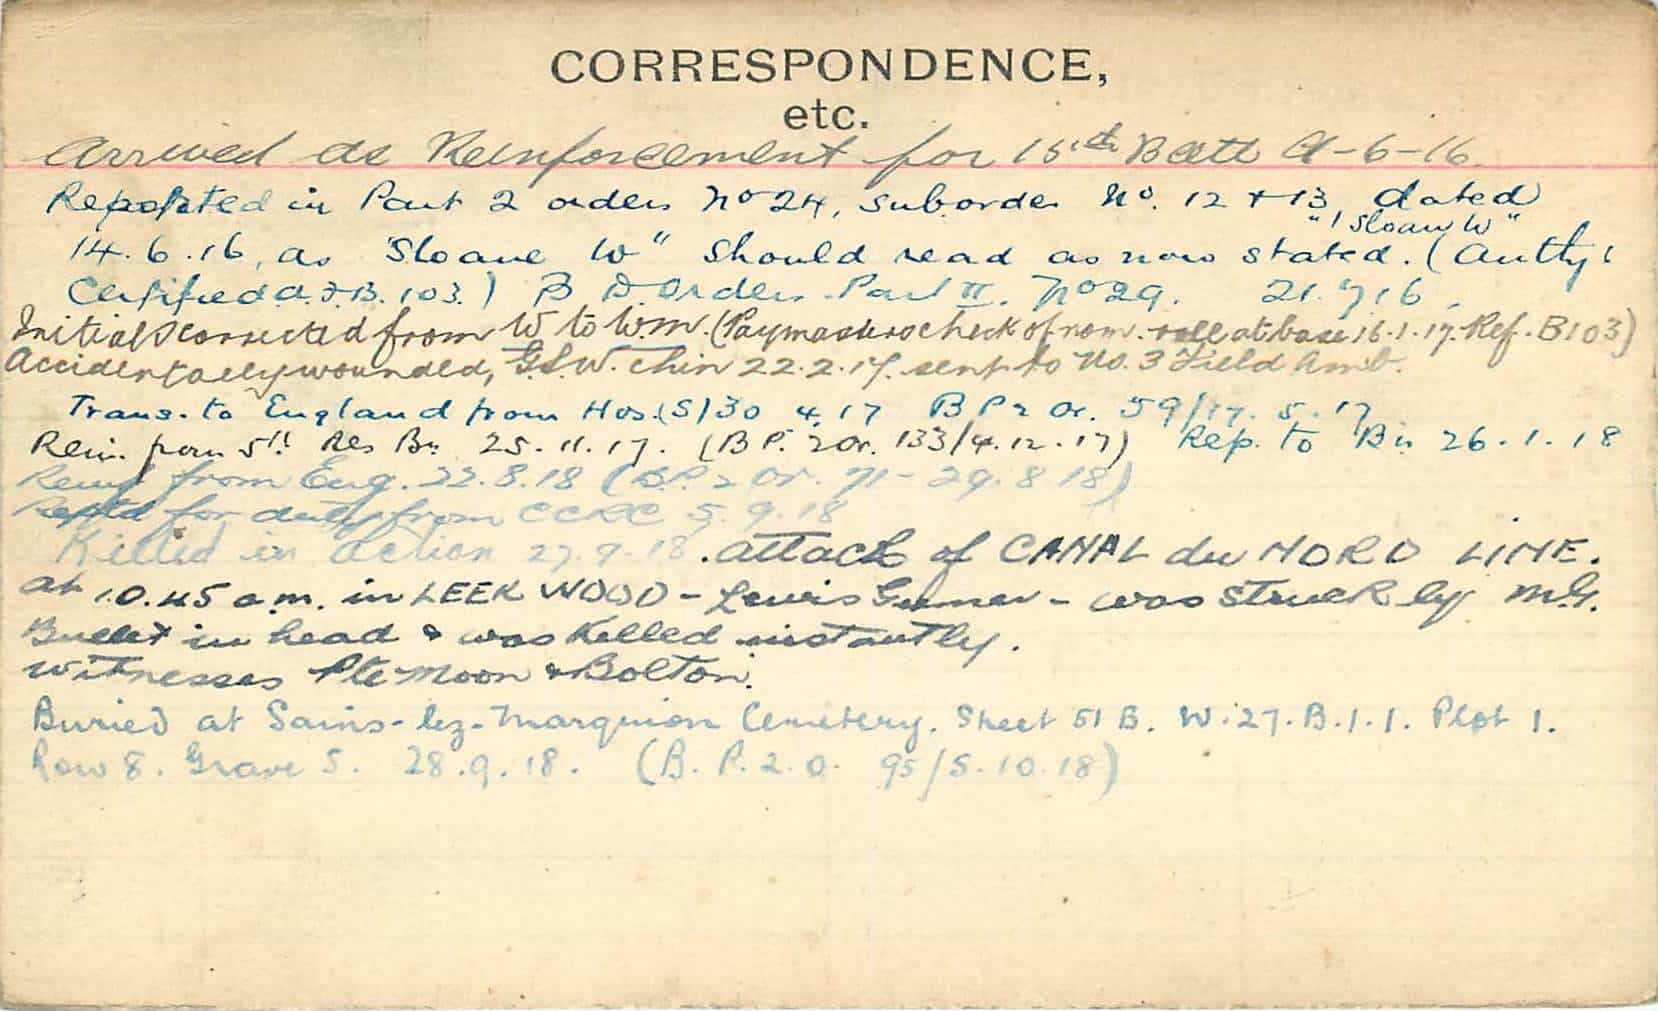 CORRESPONDENCE,
etc.
Arrived as Reinforcement for 15th Batt 9-6-16.
Reported in Part 2 orders No 24, suborder No. 12 + 13, dated
"Sloan W"
14.6.16, as "Sloane W" should read as now stated. (Authy:
Certified A.F.B. 103.) B D Orders Part II. No 29. 21.7.16.
Initials corrected from W to Wm. (Paymasters check of nom. roll at base 16.1.17. Ref. B103)
Accidentally wounded, G.S.W. chin 22.2.17. sent to No. 3 Field Amb.
Trans. to England from Hos. (S) 30 4.17 B P 2 Or. 59/17. 5. 17
Rein. from 5th Res Bn 25.11.17. (B P. 2 Or. 133/4.12.17) Rep. to Bn 26.1.18
Reinf from Eng. 22.8.18 (B.P. 2 Or. 71-29.8.18)
Reptd for duty from CCRC 5.9.18
Killed in Action 27.9.18. attack of CANAL du NORD LINE.
at 10.45 a.m. in LEEK WOOD - Lewis Gunner - was struck by M.G.
Bullet in head & was killed instantly.
Witnesses Pte Moon & Bolton.
Buried at Sains-lez-Marquion Cemetery. Sheet 51 B. W.27.B.1.1. Plot 1.
Row 8. Grave 5. 28.9.18. (B. P. 2. O. 95/5.10.18)